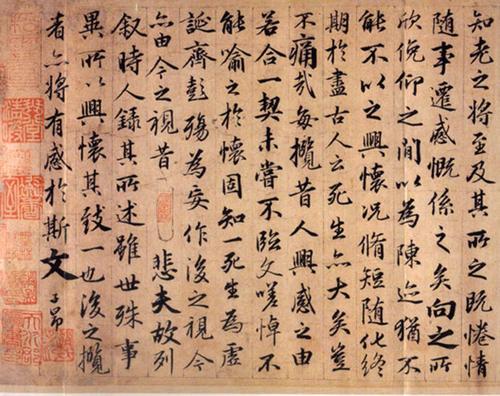 知老之将至及其所之既惓情
随事遷感慨係之矣向之所
欣俛仰之間以為陳迹猶不
能不以之興懷况脩短随化終
期於盡古人云死生亦大矣豈
不痛哉每攬昔人興感之由
若合一契未嘗不臨文嗟悼不
能喻之於懷固知一死生為虚
誕齊彭殤為妄作後之視今
亦由今之視昔 悲夫故列
叙時人録其所述雖世殊事
異所以興懷其致一也後之攬
者亦将有感於斯文 子昂